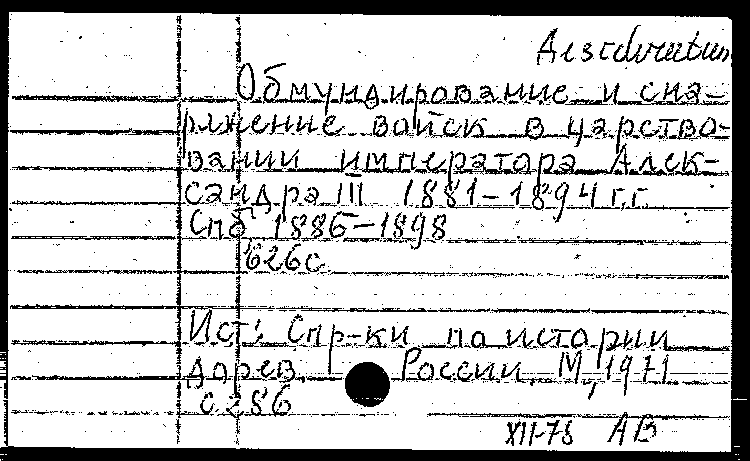 Desideratum
Обмундирование и сна-
ряжение войск в царство-
вании императора Алек-
сандра III 1881–1894 г.г.
Спб 1886–1898
626с.
Ист: Спр-ки по истории
дорев. России. М., 1971
с 286
XII-78 АВ